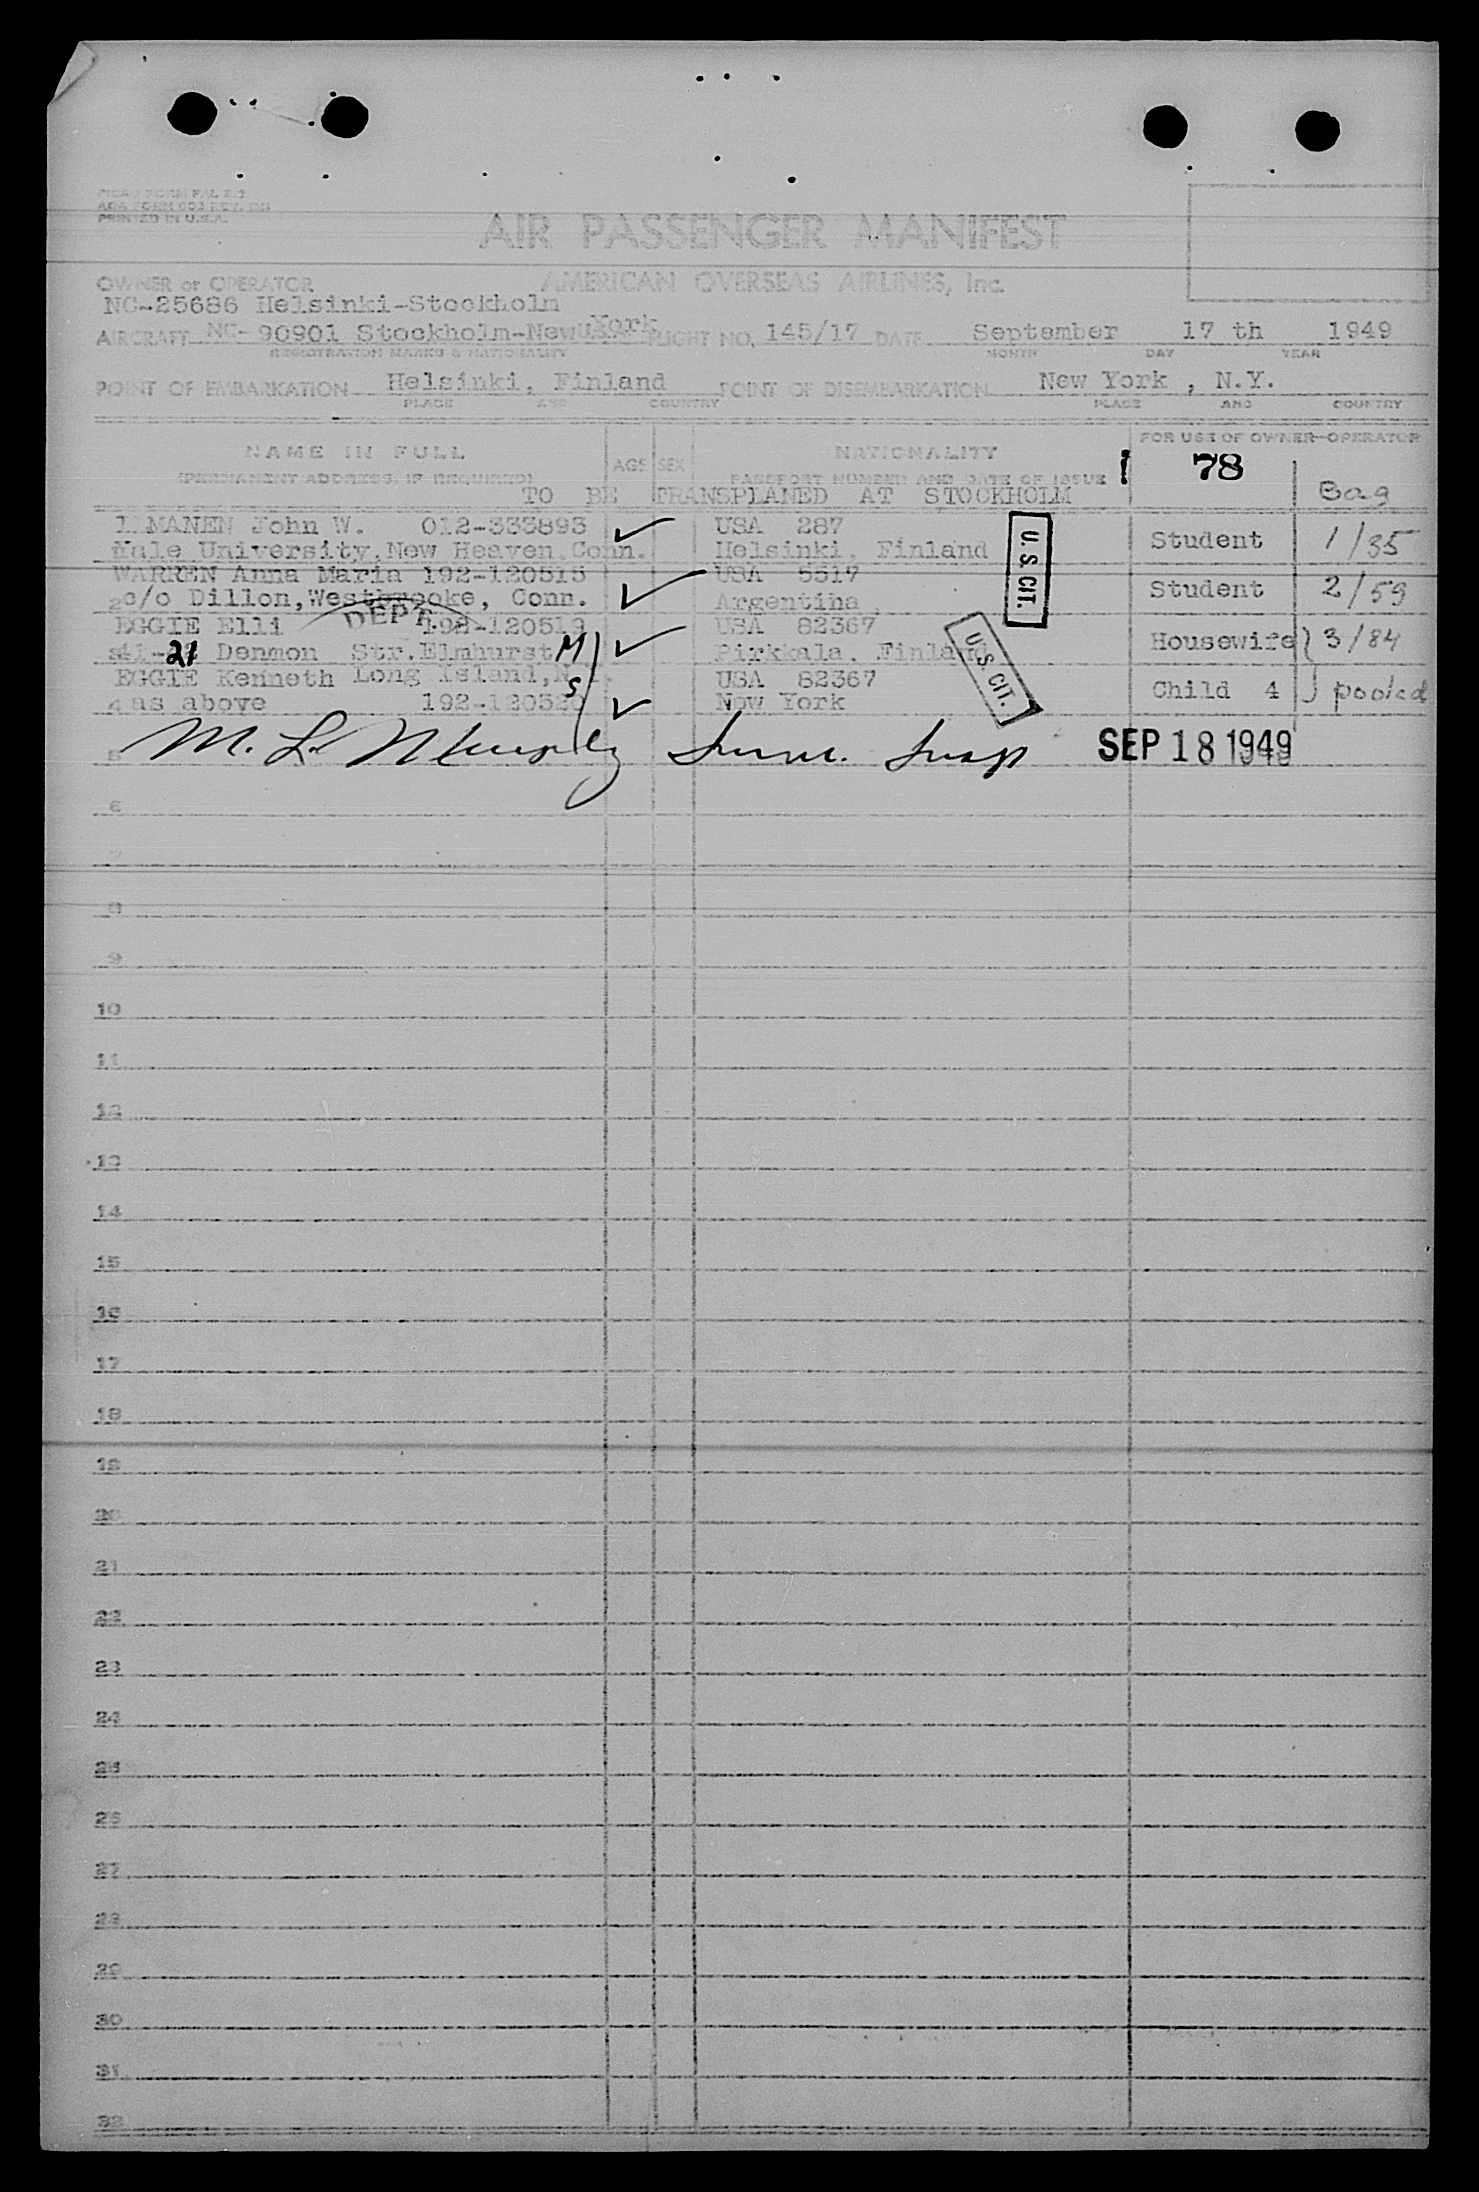 PRINTED IN U.S.A.
AIR PASSENGER MANIFEST
OWNER or OPERATOR AMERICAN OVERSEAS AIRLINES, Inc.
NC-25686 Helsinki-Stockholm
AIRCRAFT NC-90901 Stockholm-New York FLIGHT NO. 145/17 DATE September 17 th 1949
REGISTRATION MARKS & NATIONALITY MONTH DAY YEAR
POINT OF EMBARKATION Helsinki, Finland POINT OF DISEMBARKATION New York , N.Y.
PLACE AND COUNTRY PLACE AND COUNTRY
NAME IN FULL AGE SEX NATIONALITY FOR USE OF OWNER-OPERATOR
(PERMANENT ADDRESS, IF REQUIRED) PASSPORT NUMBER AND DATE OF ISSUE 78
TO BE TRANSPLANED AT STOCKHOLM Bag
MANEN John W. 012-333893 USA 287
Yale University, New Heaven Conn. Helsinki, Finland U.S.CIT. Student 1/35
WARREN Anna Maria 192-120515 USA 5517
2 c/o Dillon, Westbrooke, Conn. Argentina Student 2/59
DEPT.
EGGIE Elli 192-120519 USA 82367
41-21 Denmon Str. Elmhurst M Pirkkala, Finland U.S CIT. Housewife 3/84
EGGIE Kenneth Long Island, N.Y. USA 82367
4 as above 192-120520 S New York Child 4 pooled
5 M. L. Murphy SEP 18 1949
6
7
8
9
10
11
12
13
14
15
16
17
18
19
20
21
22
23
24
25
26
27
28
29
30
31
32